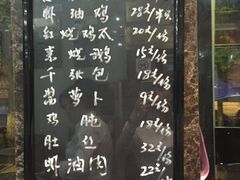 虾油鸡 28元/半只
红烧鸡 20元/份
素烧鹅 15元/份
千张包 18元/份
酱萝卜 9元/份
鸡肫 18元/份
肚 32元/份
虾油肉 22元/份